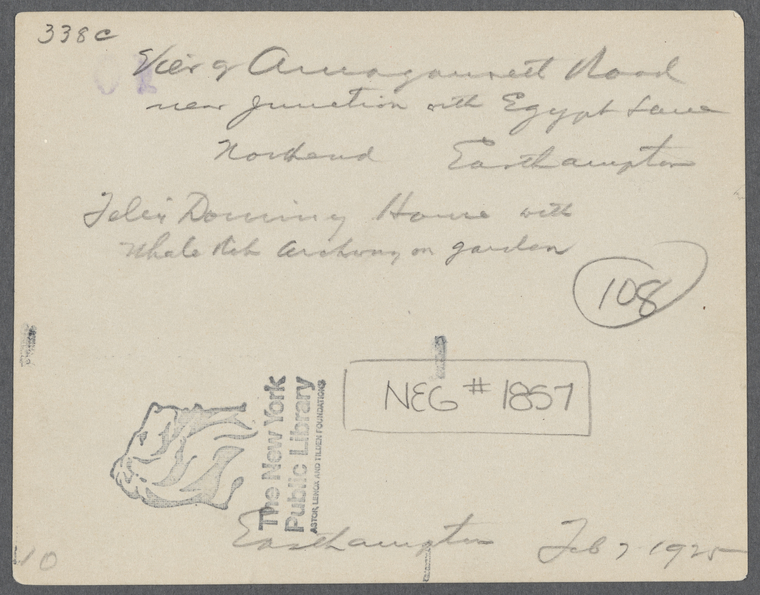 338c
View of Amagansett Road
near junction with Egypt Lane
North end Easthampton
Felix Dominy House with
Whale Rib Archway on garden
108
NEG # 1857
The New York
Public Library
ASTOR, LENOX AND TILDEN FOUNDATIONS
Easthampton Feb 7 1925